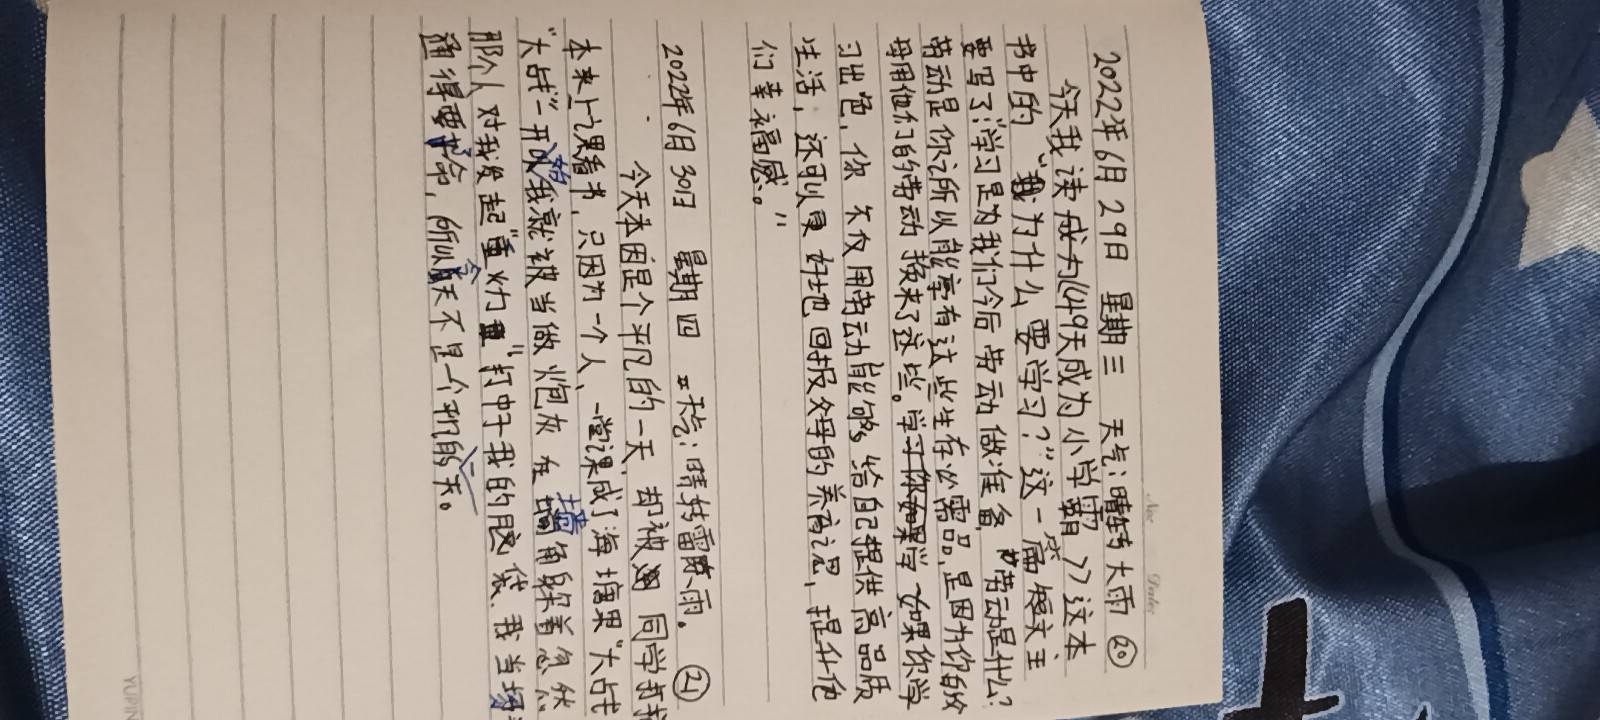 No.
Date
2022年6月29日 星期三 天气：晴转大雨 ⑳
今天我读成为《49天成为小学霸》这本
书中的“我为什么要学习？”这一篇短文主
要写了：学习是为我们今后劳动做准备，“劳动是什么？
劳动是你之所以能享有这些生存必需品，是因为你的父
母用他们的劳动换来了这些。如果你学
习出色，你不仅用劳动能够给自己提供高品质
生活，还可以更好地回报父母的养育之恩，提升他
们幸福感。”
2022年6月30日 星期四 天气：晴转雷阵雨。 ㉑
今天本因是个平凡的一天，却被同学打扰
本来上课看书，只因为一个人，一堂课成了海塘果“大战
“大战”一开始我就被当做炮灰在墙角躲着忽然
那个人对我发起“重火力”打中了我的脑袋，我当场
通得要命，所以今天不是一个平凡的一天。
YUPIN